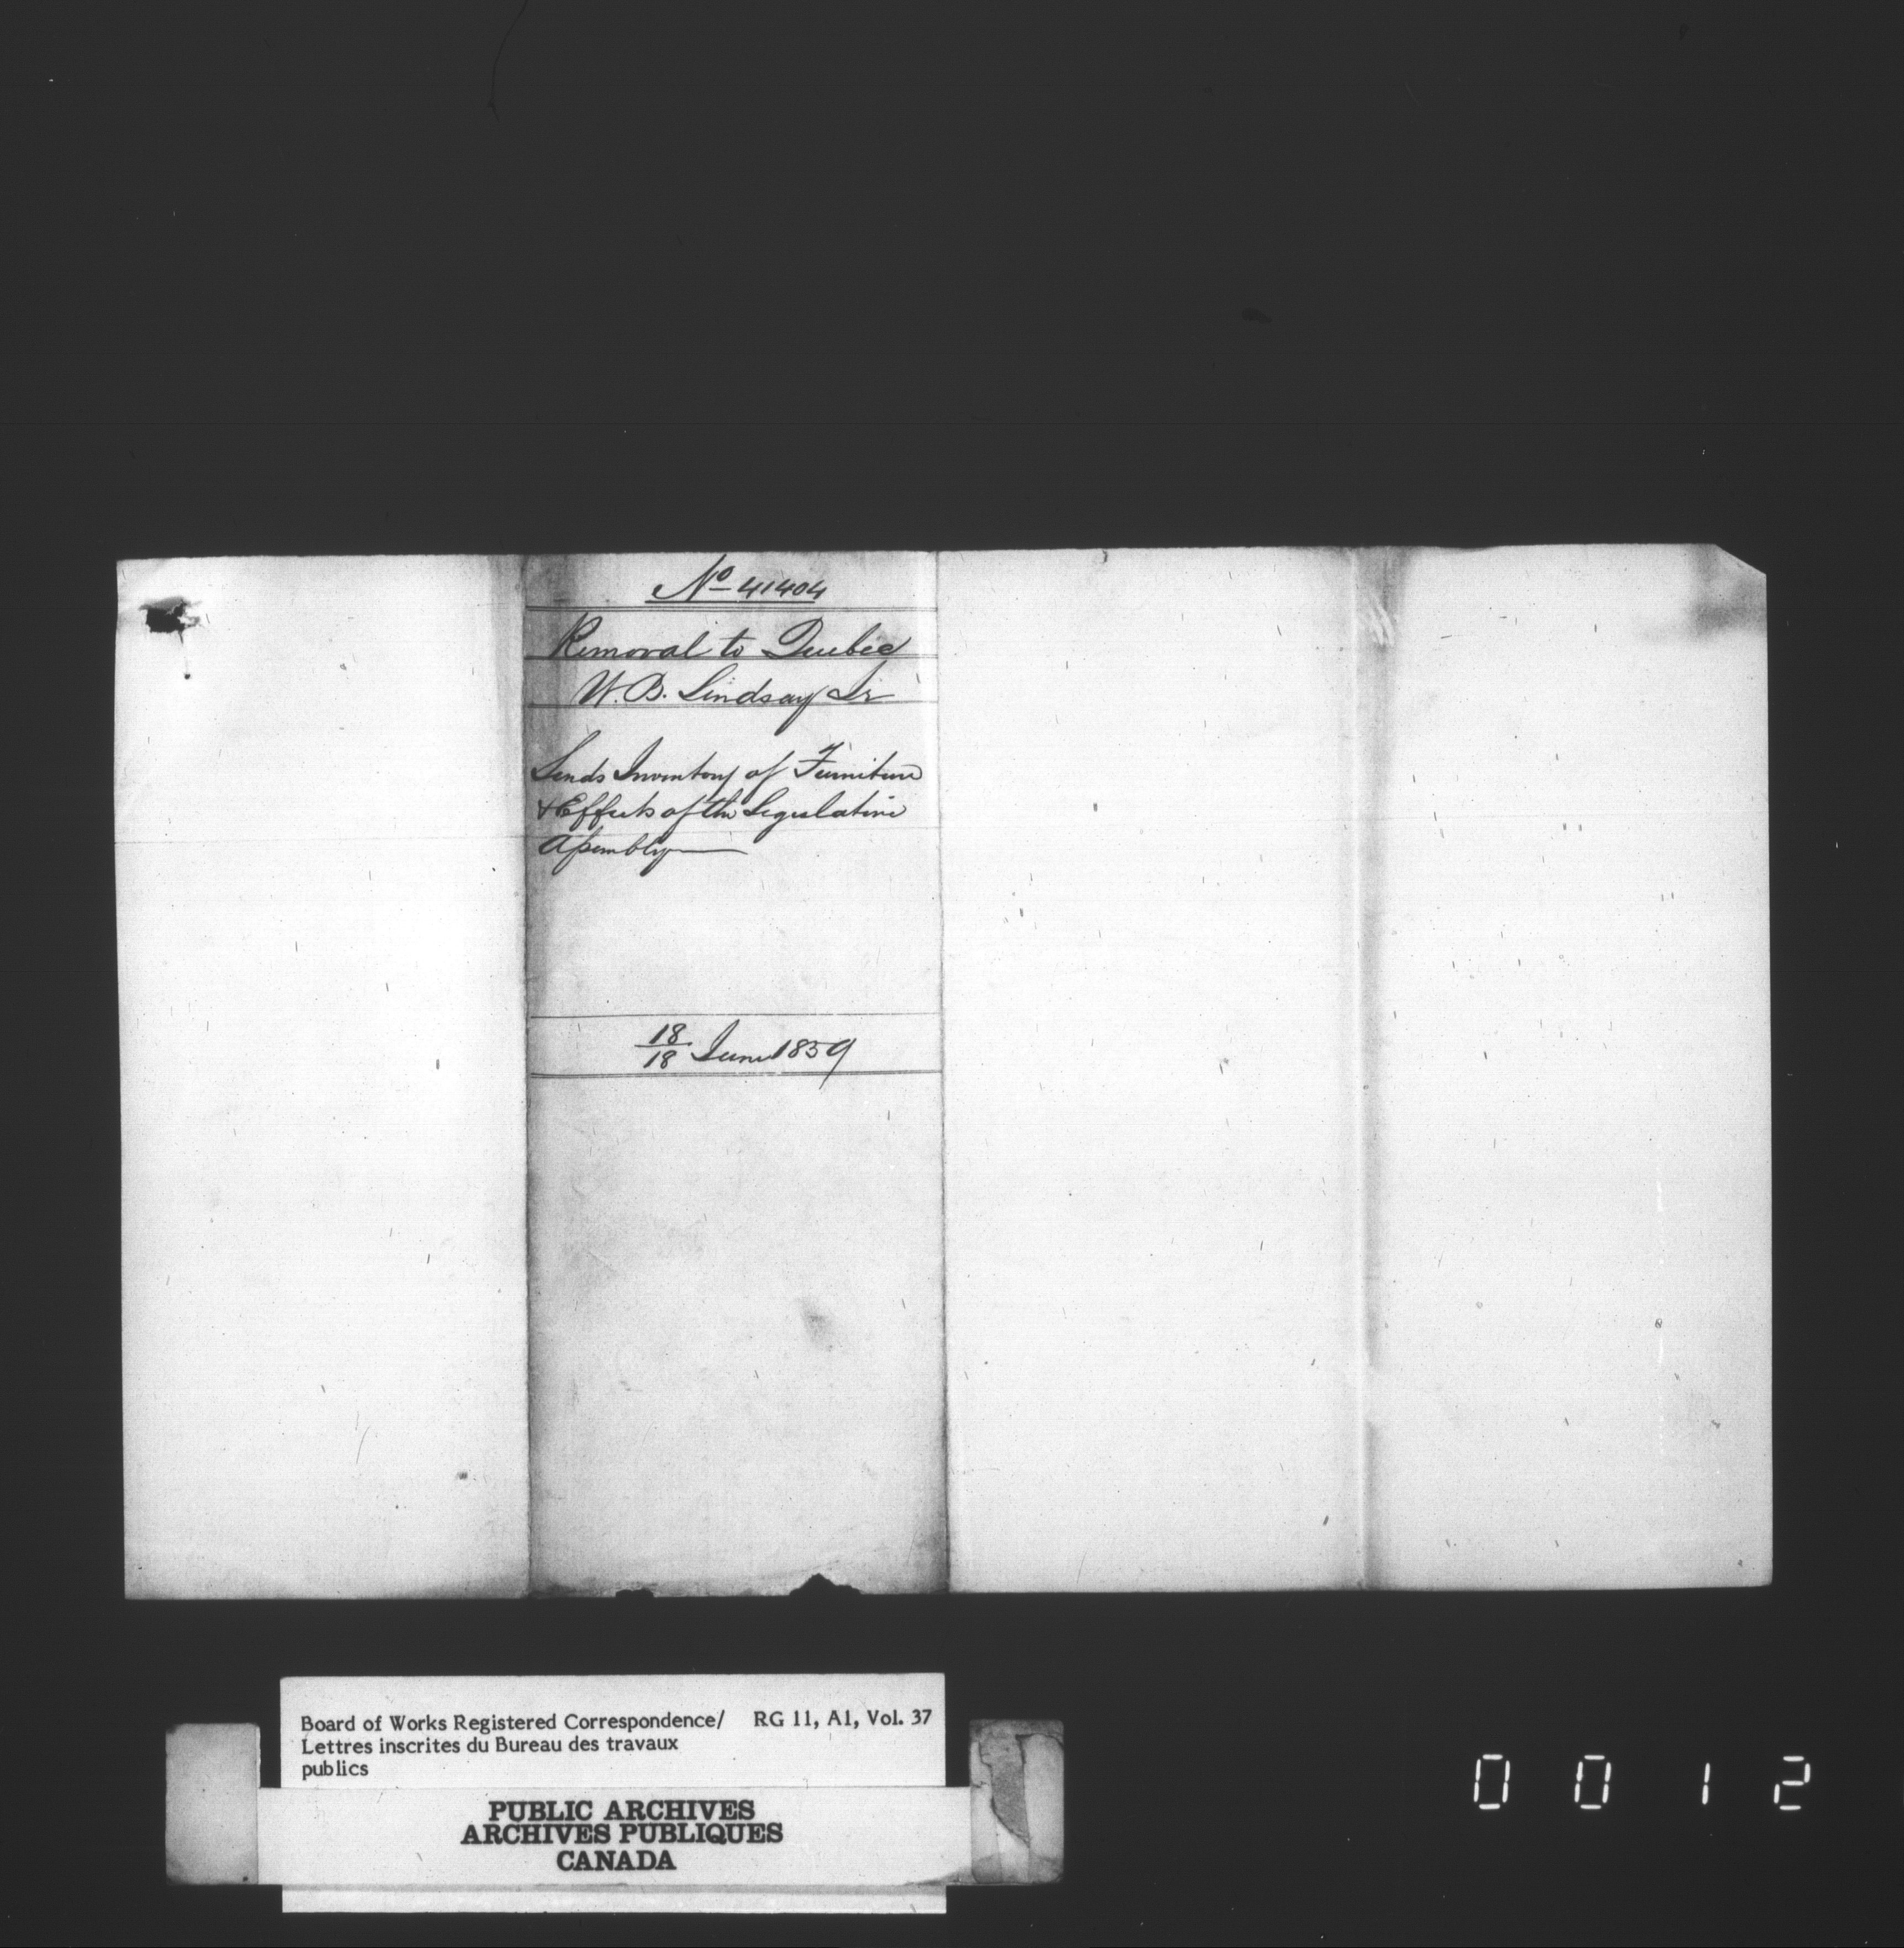 No 41404
Removal to Quebec
W. B. Lindsay Jr
Sends Inventory of Furniture
& Effects of the Legislative
Assembly
18/18 June 1859
Board of Works Registered Correspondence/ RG 11, A1, Vol. 37
Lettres inscrites du Bureau des travaux
publics
PUBLIC ARCHIVES
ARCHIVES PUBLIQUES
CANADA
0012